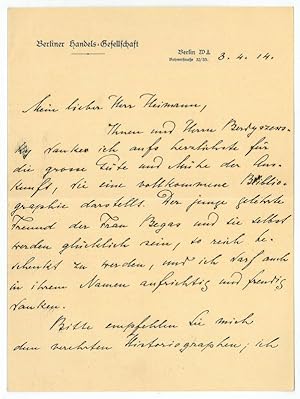 Berliner Handels-Gesellschaft
Berlin W 8.
Behrenstraße 32/33.
3. 4. 14.
Mein lieber Herr Heimann,
Ihnen und Herrn Berdyszews-
ky danke ich aufs herzlichste für
die grosse Güte und Mühe der Aus-
kunft, die eine vollkommene Biblio-
graphie darstellt. Der junge gelehrte
Freund der Frau Begas und sie selbst
werden glücklich sein, so reich be-
schenkt zu werden, und ich darf auch
in ihrem Namen aufrichtig und freudig
danken.
Bitte empfehlen Sie mich
dem verehrten Historiographen; ich